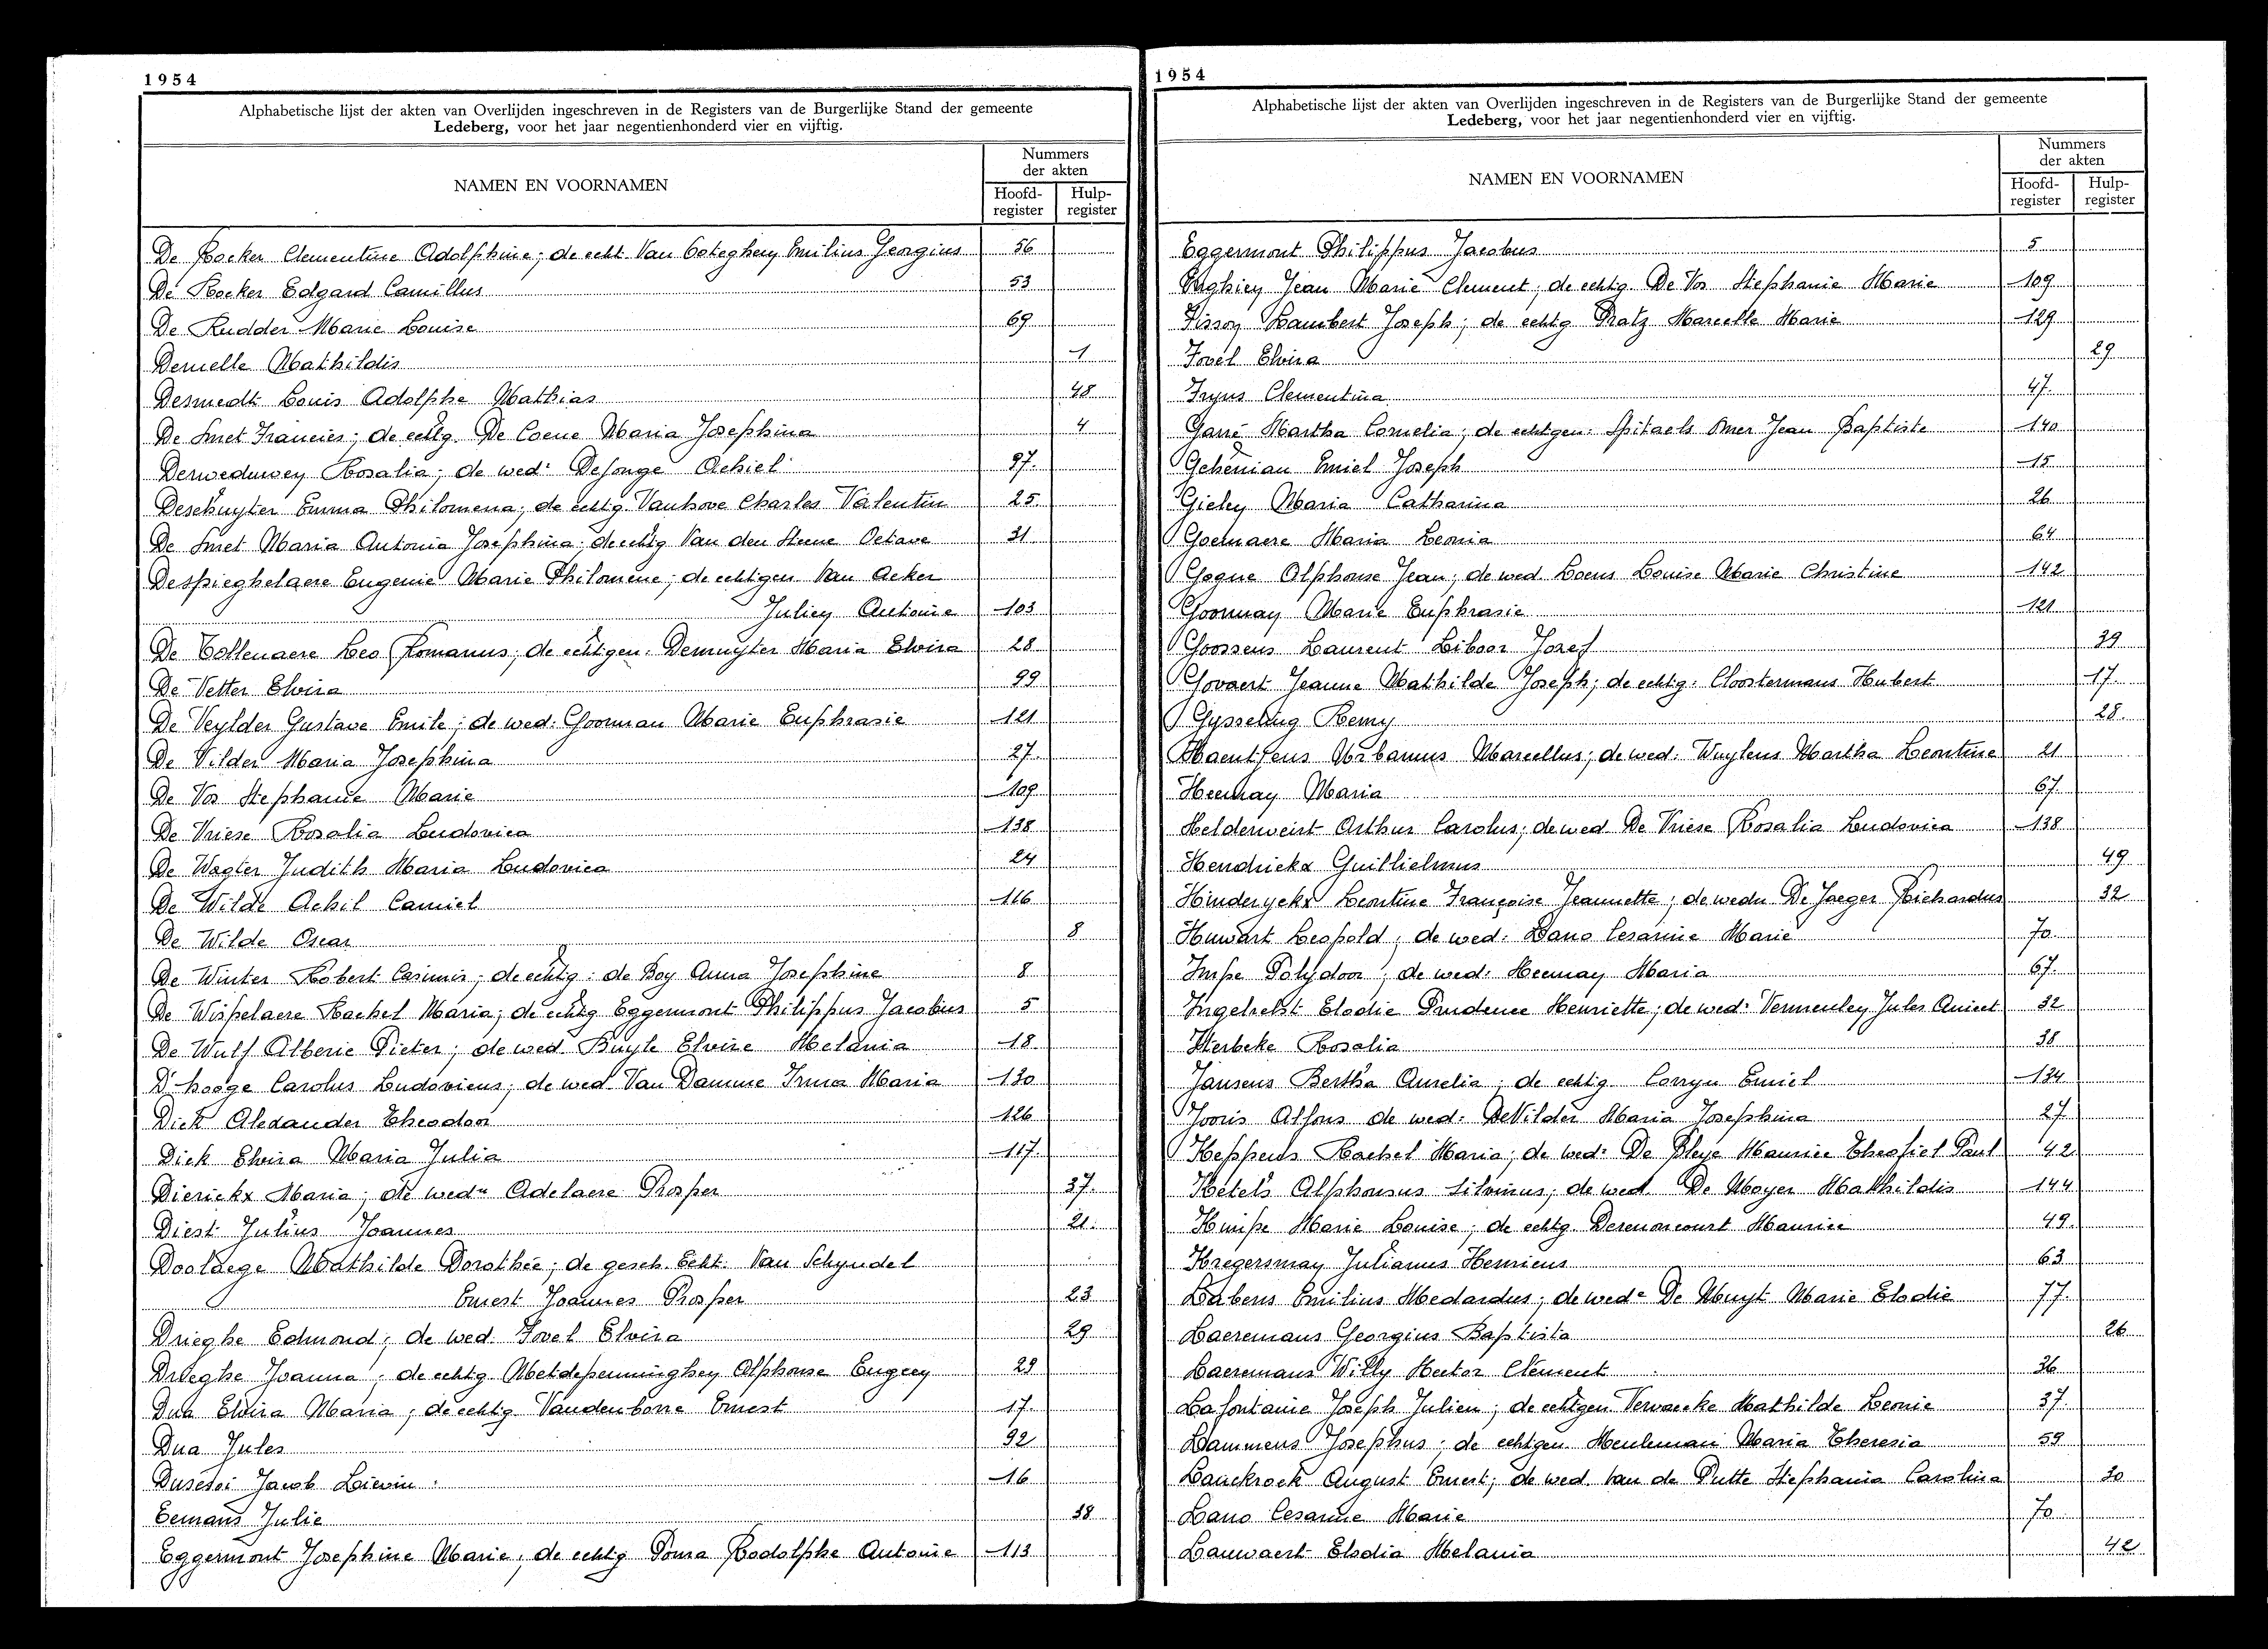 1954
Alphabetische lijst der akten van Overlijden ingeschreven in de Registers van de Burgerlijke Stand der gemeente
Ledeberg, voor het jaar negentienhonderd vier en vijftig.
NAMEN EN VOORNAMEN
Nummers
der akten
Hoofd-
register
Hulp-
register
De Backer Clementine Adolphine; de echt. Van Coteghem Emilius Georgius 56
De Backer Edgard Camillus 53
De Rudder Marie Louise 69
Deruelle Mathildis 1
Desmedt Louis Adolphe Mathias 48
De Smet Francies; de echtg. De Coene Maria Josephina 4
Derweduwen Rosalia; de wed. DeJonge Achiel 97
Deschuyter Emma Philomena; de echtg. Vanhove Charles Valentin 25
De Smet Maria Antonia Josephina; de echtg Van den Steene Octave 31
Despieghelaere Eugenie Marie Philomene; de echtgen. Van Acker
Julien Antoine 103
De Tollenaere Leo Romanus; de echtgen. Demuyter Maria Elvira 28
De Vetter Elvira 99
De Veylder Gustave Emile; de wed: Goorman Marie Euphrasie 121
De Vilder Maria Josephina 27
De Vos Stephanie Marie 109
De Vriese Rosalia Ludovica 138
De Wagter Judith Maria Ludovica 24
De Wilde Achil Camiel 116
De Wilde Oscar 8
De Winter Robert Casimir; de echtg: de Boy Anna Josephine 8
De Wispelaere Rachel Maria; de echtg Eggermont Philippus Jacobus 5
De Wulf Alberic Pieter; de wed. Buyle Elvire Melania 18
D'hooge Carolus Ludovicus; de wed. Van Damme Irma Maria 130
Dick Alexander Theodoor 126
Dick Elvira Maria Julia 117
Dierickx Maria; de wedu Adelaere Prosper 37
Diest Julius Joannes 21
Doolaege Mathilde Dorothée; de gesch. Echt. Van Schyndel
Ernest Joannes Prosper 23
Drieghe Edmond; de wed. Fovel Elvira 29
Drieghe Joanna; de echtg Metdepenninghen Alphonse Eugeen 29
Dua Elvira Maria; de echtg Vandenborre Ernest 17
Dua Jules 92
Dusesoi Jacob Lievin 16
Eemans Julie 38
Eggermont Josephine Marie; de echtg Poma Rodolphe Antoine 113
1954
Alphabetische lijst der akten van Overlijden ingeschreven in de Registers van de Burgerlijke Stand der gemeente
Ledeberg, voor het jaar negentienhonderd vier en vijftig.
NAMEN EN VOORNAMEN
Nummers
der akten
Hoofd-
register
Hulp-
register
Eggermont Philippus Jacobus 5
Enghien Jean Marie Clement; de echtg. De Vos Stephanie Marie 109
Fisson Lambert Joseph; de echtg Pratz Marcelle Marie 129
Fovel Elvira 29
Fryns Clementina 47
Garré Martha Cornelia; de echtgen. Spitaels Omer Jean Baptiste 140
Gehénian Emiel Joseph 15
Gielen Maria Catharina 26
Goemaere Maria Leonia 64
Gogne Alphonse Jean; de wed. Loens Louise Marie Christine 142
Goorman Marie Euphrasie 121
Goossens Laurent Liboor Jozef 39
Govaert Jeanne Mathilde Joseph; de echtg. Cloostermans Hubert 17
Gysseling Remy 28
Haentjens Urbanus Marcellus; de wed: Wuylens Martha Leontine 21
Heeman Maria 67
Helderweirt Arthur Carolus; de wed De Vriese Rosalia Ludovica 138
Hendrickx Guillielmus 49
Hinderyckx Leontine Françoise Jeannette; de wedu De Jaeger Richardus 32
Huwart Leopold; de wed: Lano Cesarine Marie 70
Impe Polydoor; de wed: Heeman Maria 67
Ingelrelst Elodie Prudence Henriette; de wed: Vermeulen Jules Anicet 32
Iserbeke Rosalia 38
Jansens Bertha Aurelia; de echtg. Corryn Emiel 134
Jooris Alfons de wed: DeVilder Maria Josephina 27
Keppens Rachel Maria; de wed: De Pleye Maurice Theofiel Paul 42
Ketels Alphonsus Silvinus; de wed. De Moyer Mathildis 144
Knipe Marie Louise; de echtg. Derenoncourt Maurice 49
Kregersman Julianus Henricus 63
Labens Emilius Medardus; de wed: De Muyt Marie Elodie 77
Laeremans Georgius Baptista 26
Laeremans Willy Hector Clement 36
Lafontanie Joseph Julien; de echtgen. Verwaecke Mathilde Leonie 37
Lammens Josephus; de echtgen. Meuleman Maria Theresia 59
Lanckrock August Ernest; de wed. Van de Putte Stephania Carolina 30
Lano Cesarine Marie 70
Lauwaert Elodia Melania 42